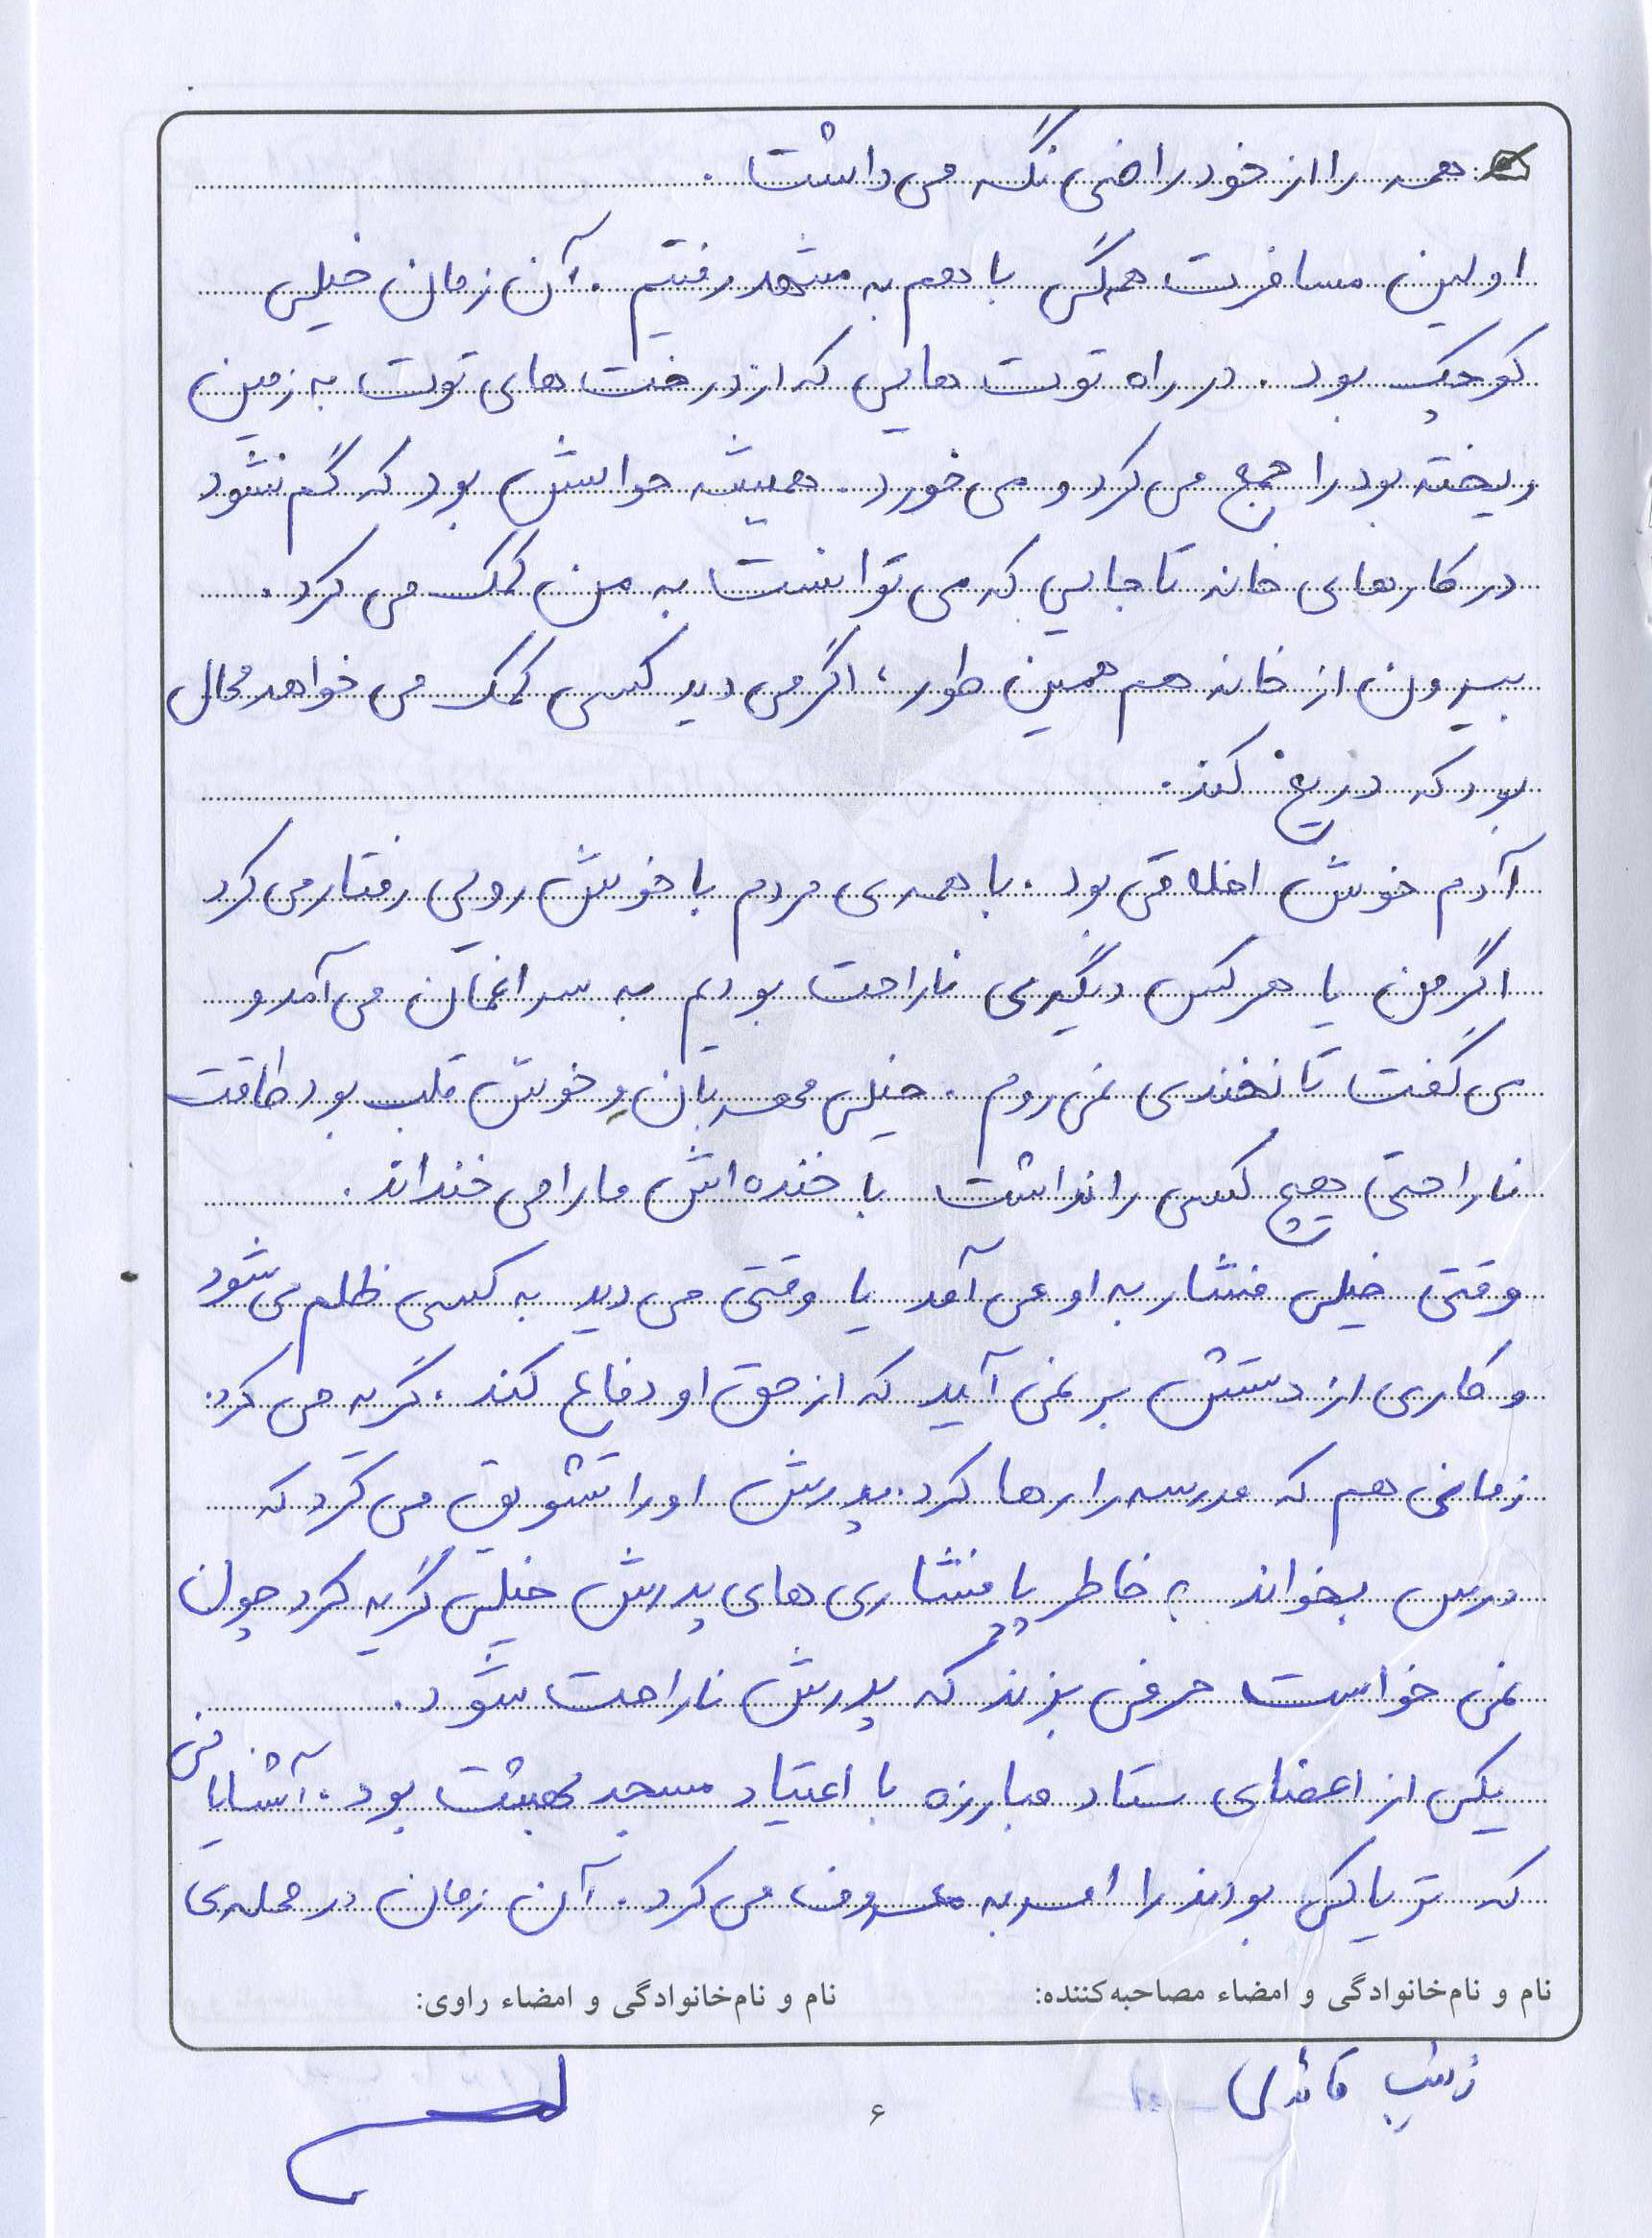 همه را از خود راضی نگه می داشت .
اولین مسافرت همگی با هم به مشهد رفتیم . آن زمان خیلی
کوچک بود . در راه توت هایی که از درخت های توت به زمین
ریخته بود را جمع می کرد و می خورد . همیشه حواسش بود که گم نشود
در کارهای خانه تا جایی که می توانست به من کمک می کرد .
بیرون از خانه هم همین طور ، اگر می دید کسی کمک می خواهد محال
بود که دریغ کند .
آدم خوش اخلاقی بود . با همه ی مردم با خوش رویی رفتار می کرد
اگر من یا هر کس دیگری ناراحت بودیم به سراغمان می آمد و
می گفت تا نخندی نمی روم . خیلی مهربان و خوش قلب بود طاقت
ناراحتی هیچ کسی را نداشت با خنده اش ما را می خنداند .
وقتی خیلی فشار به او می آمد یا وقتی می دید به کسی ظلم می شود
و کاری از دستش بر نمی آید که از حق او دفاع کند ، گریه می کرد .
زمانی هم که مدرسه را رها کرد . پدرش او را تشویق می کرد که
درس بخواند به خاطر پافشاری های پدرش خیلی گریه کرد چون
نمی خواست حرفی بزند که پدرش ناراحت شود .
یکی از اعضای ستاد مبارزه با اعتیاد مسجد بهشت بود . آشنایانی
که تریاکی بودند را امر به معروف می کرد . آن زمان در محله ی
نام و نام‌خانوادگی و امضاء مصاحبه‌کننده: نام و نام‌خانوادگی و امضاء راوی:
زینب قائدی
۶